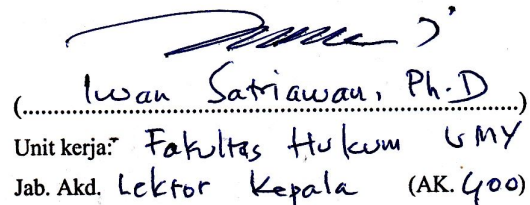 (Iwan Satriawan, Ph.D)
Unit kerja: Fakultas Hukum UMY
Jab. Akd. Lektor Kepala (AK. 400)